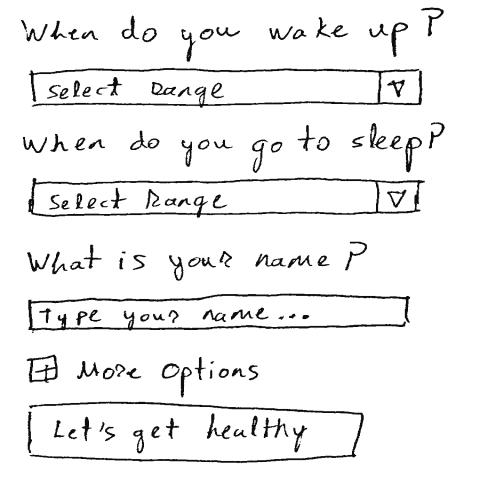 When do you wake up?
Select Range
When do you go to sleep?
Select Range
What is your name?
Type your name...
More Options
Let's get healthy